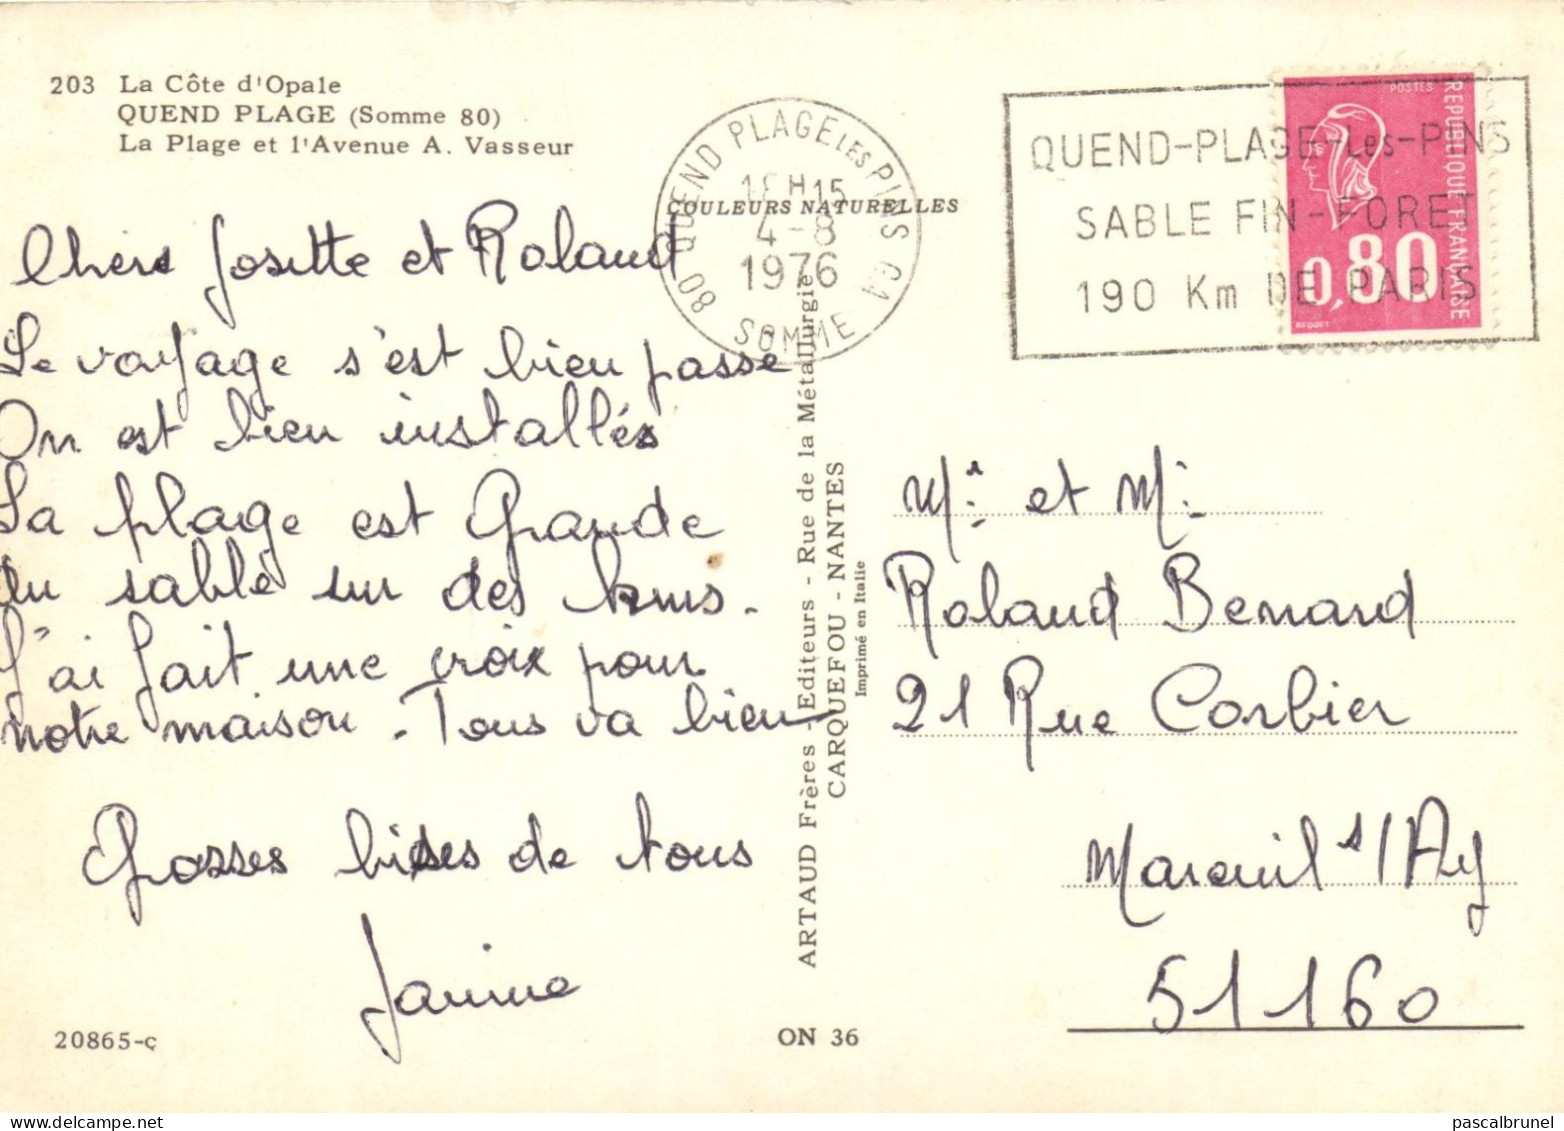 203 La Côte d'Opale
QUEND PLAGE (Somme 80)
La Plage et l'Avenue A. Vasseur
COULEURS NATURELLES
Chers Josette et Roland
Le voyage s'est bien passé
On est bien installés
La plage est Grande
du sable sur des kms.
J'ai fait une croix pour
notre maison. Tous va bien
Grosses bises de tous
Janine
20865-c
ON 36
ARTAUD Frères - Editeurs - Rue de la Métallurgie
CARQUEFOU - NANTES
Imprimé en Italie
80 QUEND PLAGE LES PINS C1
H15
4-8
1976
SOMME
QUEND-PLAGE-Les-PINS
SABLE FIN-FORET
190 Km DE PARIS
POSTES
REPUBLIQUE FRANCAISE
0,80
BEQUET
Mr. et M.
Roland Benard
21 Rue Corbier
Mareuil s/Ay
51160
pascalbrunel